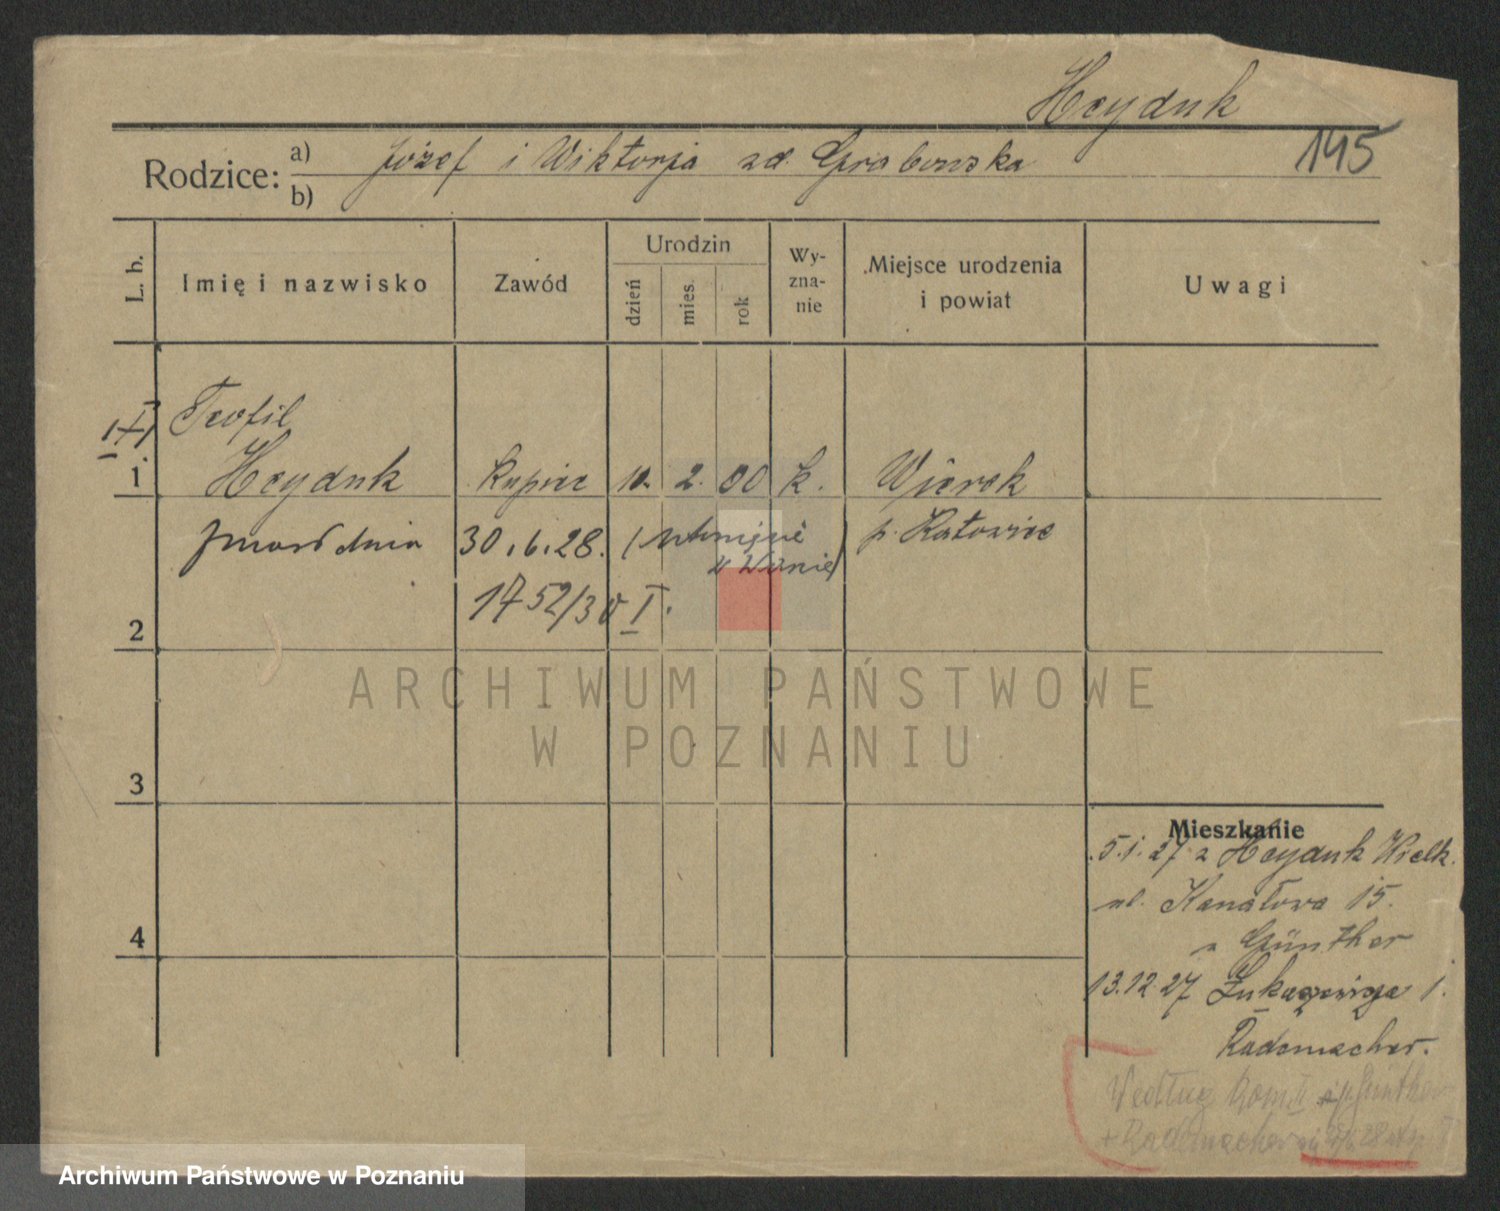 Heyduk
145
Rodzice: a) Józef i Wiktorja zd. Grabowska
b)
L. b.
Imię i nazwisko
Zawód
Urodzin
dzień
mies.
rok
Wy-
zna-
nie
Miejsce urodzenia
i powiat
Uwagi
Teofil
1 Heyduk kupiec 10. 2. 00 k. Wirek
zmarł dnia 30.6.28. ( utonięcie p. Katowice
w Warcie)
1752/30 I.
2
3
4
Mieszkanie
5.1.27 z Heyduk Wielk.
ul. Kanałowa 15.
Günther
13.12.27 Łukaszewicza 1.
Rademacher.
Według Kom. II Günther
+ Rademacher
ARCHIWUM PAŃSTWOWE
W POZNANIU
Archiwum Państwowe w Poznaniu